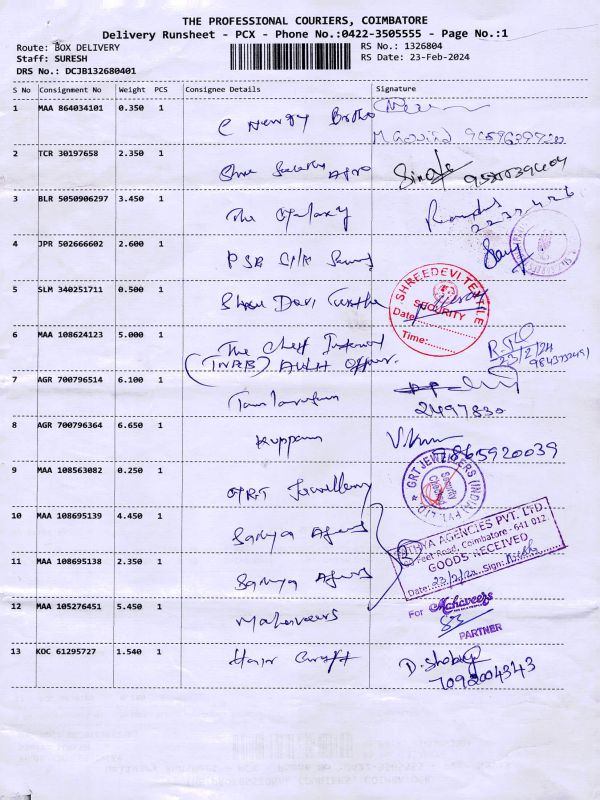 THE PROFESSIONAL COURIERS, COIMBATORE
Delivery Runsheet - PCX - Phone No.:0422-3505555 - Page No.:1
Route: BOX DELIVERY
RS No.: 1326804
Staff: SURESH
RS Date: 23-Feb-2024
DRS No.: DCJB132680401
S No Consignment No Weight PCS Consignee Details Signature
1 MAA 864034101 0.350 1
2 TCR 30197658 2.350 1
3 BLR 5050906297 3.450 1 The Galaxy
4 JPR 502666602 2.600 1 PSR Silk
5 SLM 340251711 0.500 1 Shree Devi Textile
SHREEDEVI TEXTILE
SECURITY
Date:
Time:
6 MAA 108624123 5.000 1 The Chief
7 AGR 700796514 6.100 1
2497830
8 AGR 700796364 6.650 1 Kuppam V.Kumar
7865920039
9 MAA 108563082 0.250 1 GRT Jewellery
GRT JEWELLERS (INDIA) PVT. LTD.
Security Checked
10 MAA 108695139 4.450 1 Sathya Agencies
ATHYA AGENCIES PVT. LTD.
Street Road, Coimbatore - 641 012
GOODS RECEIVED
Date: Sign:
11 MAA 108695138 2.350 1 Sathya Agencies
12 MAA 105276451 5.450 1 Mahaveers
For Mahaveers
PARTNER
13 KOC 61295727 1.540 1 Hair Craft D. Shobay
7092004343